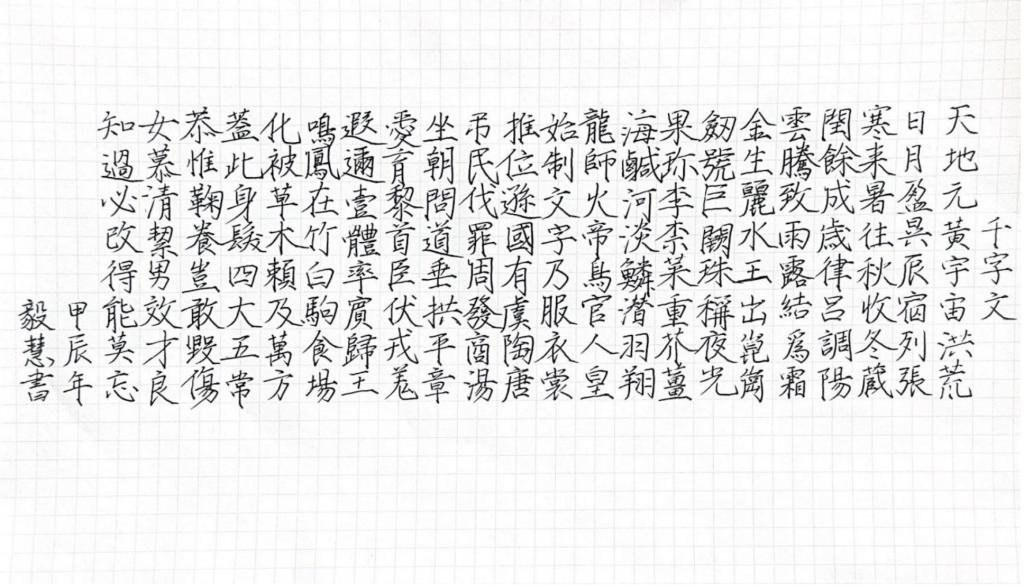 千字文
天地元黃宇宙洪荒
日月盈昃辰宿列張
寒来暑往秋收冬蔵
閏餘成歳律呂調陽
雲騰致雨露結爲霜
金生麗水玉出崑崗
劔號巨闕珠稱夜光
果珎李柰菜重芥薑
海鹹河淡鱗潛羽翔
龍師火帝鳥官人皇
始制文字乃服衣裳
推位遜國有虞陶唐
弔民伐罪周發商湯
坐朝問道垂拱平章
愛育黎首臣伏戎羌
遐邇壹體率賓歸王
鳴鳳在竹白駒食場
化被草木賴及萬方
蓋此身髮四大五常
恭惟鞠養豈敢毀傷
女慕清絜男效才良
知過必改得能莫忘
甲辰年
毅慧書